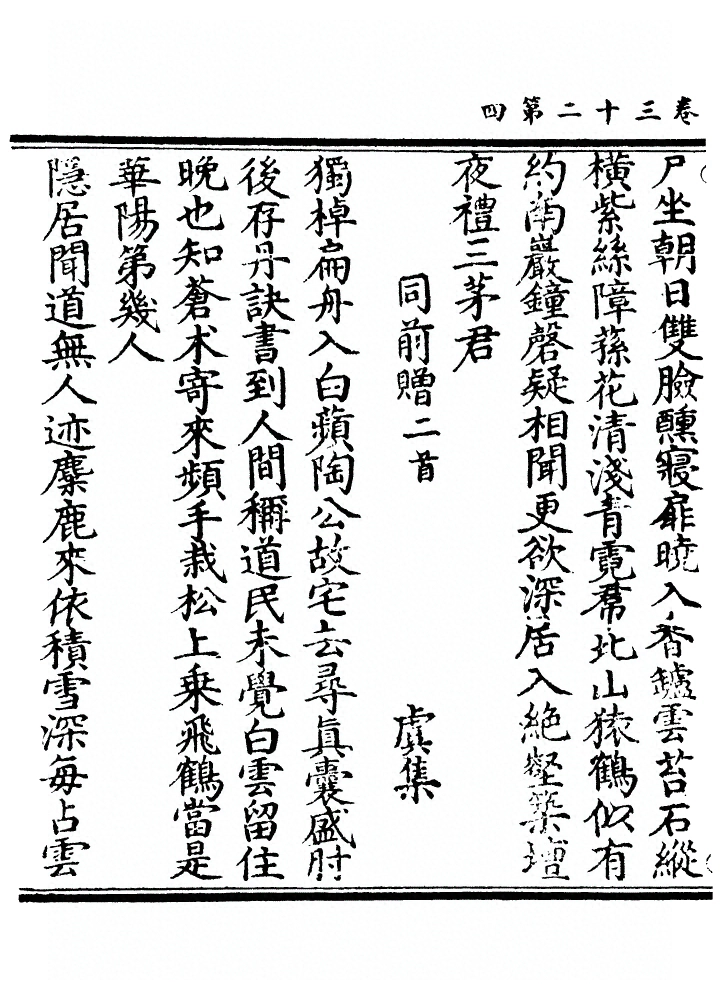 卷三十二第四
尸坐朝日雙臉醺寢扉曉入香鑪雲苔石縱
橫紫絲障蓀花清淺青霓帬北山猿鶴似有
約南巖鐘磬疑相聞更欲深居入絶壑築壇
夜禮三茅君
同前贈二首　虞集
獨棹扁舟入白蘋陶公故宅去尋眞囊盛肘
後存丹訣書到人間稱道民未覺白雲留住
晚也知蒼朮寄來頻手栽松上乗飛鶴當是
華陽第幾人
隱居聞道無人迹麋鹿來依積雪深每占雲